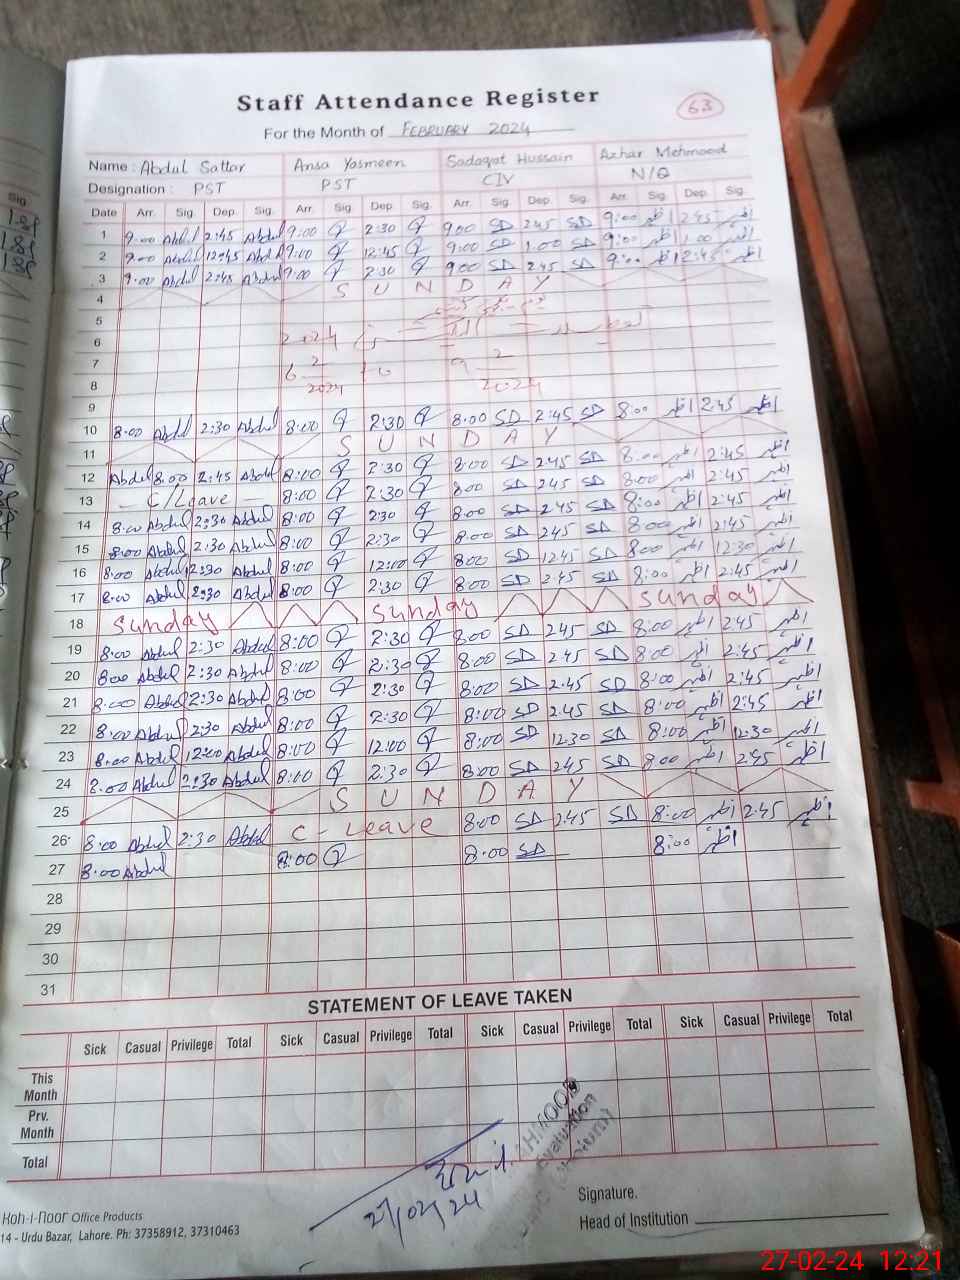 Staff Attendance Register
63
For the Month of FEBRUARY 2024
Name : Abdul Sattar Ansa Yasmeen Sadaqat Hussain Azhar Mehmood
Designation : PST PST CIV N/Q
Date Arr. Sig. Dep. Sig. Arr. Sig. Dep. Sig. Arr. Sig. Dep. Sig. Arr. Sig. Dep. Sig.
1 9:00 Abdul 2:45 Abdul 9:00 2:30 9:00 SD 2:45 SD 9:00 اظہر 2:45 اظہر
2 9:00 Abdul 12:45 Abdul 9:00 12:45 9:00 SD 1:00 SD 9:00 اظہر 1:00 اظہر
3 9:00 Abdul 2:45 Abdul 9:00 2:30 9:00 SD 2:45 SD 9:00 اظہر 2:45 اظہر
4 S U N D A Y
5
6 2024
7 6 2/2024 to 9 2/2024
8
9
10 8:00 Abdul 2:30 Abdul 8:00 2:30 8:00 SD 2:45 SD 8:00 اظہر 2:45 اظہر
11 S U N D A Y
12 Abdul 8:00 2:45 Abdul 8:00 2:30 8:00 SD 2:45 SD 8:00 اظہر 2:45 اظہر
13 C/Leave 8:00 2:30 8:00 SD 2:45 SD 8:00 اظہر 2:45 اظہر
14 8:00 Abdul 2:30 Abdul 8:00 2:30 8:00 SD 2:45 SD 8:00 اظہر 2:45 اظہر
15 8:00 Abdul 2:30 Abdul 8:00 2:30 8:00 SD 2:45 SD 8:00 اظہر 2:45 اظہر
16 8:00 Abdul 2:30 Abdul 8:00 12:00 8:00 SD 12:45 SD 8:00 اظہر 12:30 اظہر
17 8:00 Abdul 2:30 Abdul 8:00 2:30 8:00 SD 2:45 SD 8:00 اظہر 2:45 اظہر
18 Sunday Sunday Sunday
19 8:00 Abdul 2:30 Abdul 8:00 2:30 8:00 SD 2:45 SD 8:00 اظہر 2:45 اظہر
20 8:00 Abdul 2:30 Abdul 8:00 2:30 8:00 SD 2:45 SD 8:00 اظہر 2:45 اظہر
21 8:00 Abdul 2:30 Abdul 8:00 2:30 8:00 SD 2:45 SD 8:00 اظہر 2:45 اظہر
22 8:00 Abdul 2:30 Abdul 8:00 2:30 8:00 SD 2:45 SD 8:00 اظہر 2:45 اظہر
23 8:00 Abdul 12:00 Abdul 8:00 12:00 8:00 SD 12:30 SD 8:00 اظہر 12:30 اظہر
24 8:00 Abdul 2:30 Abdul 8:00 2:30 8:00 SD 2:45 SD 8:00 اظہر 2:45 اظہر
25 S U N D A Y
26 8:00 Abdul 2:30 Abdul C- Leave 8:00 SD 2:45 SD 8:00 اظہر 2:45 اظہر
27 8:00 Abdul 8:00 8:00 SD 8:00 اظہر
28
29
30
31
STATEMENT OF LEAVE TAKEN
Sick Casual Privilege Total Sick Casual Privilege Total Sick Casual Privilege Total Sick Casual Privilege Total
This Month
Prv. Month
Total
27/02/24
Signature.
Head of Institution
Koh-I-Noor Office Products
14 - Urdu Bazar, Lahore. Ph: 37358912, 37310463
27-02-24 12:21